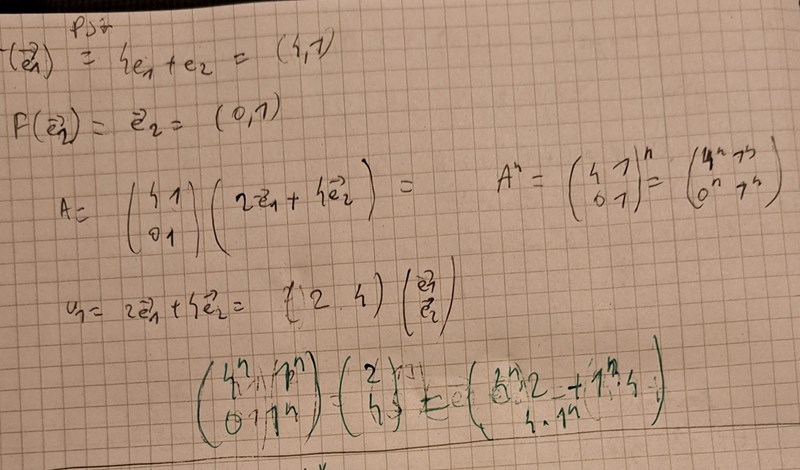 (e⃗1) = 4e1 + e2 = (4,1)
F(e⃗2) = e⃗2 = (0,1)
A = (4 1 0 1) (2e⃗1 + 4e⃗2) =
Aⁿ = (4 1 0 1)ⁿ = (4ⁿ 1ⁿ 0ⁿ 1ⁿ)
2e⃗1 + 4e⃗2 = (2 4) (e⃗1 e⃗2)
(4ⁿ 1ⁿ
0 1ⁿ) (2 4) = (4ⁿ 2 + 1ⁿ 4
4·1ⁿ)